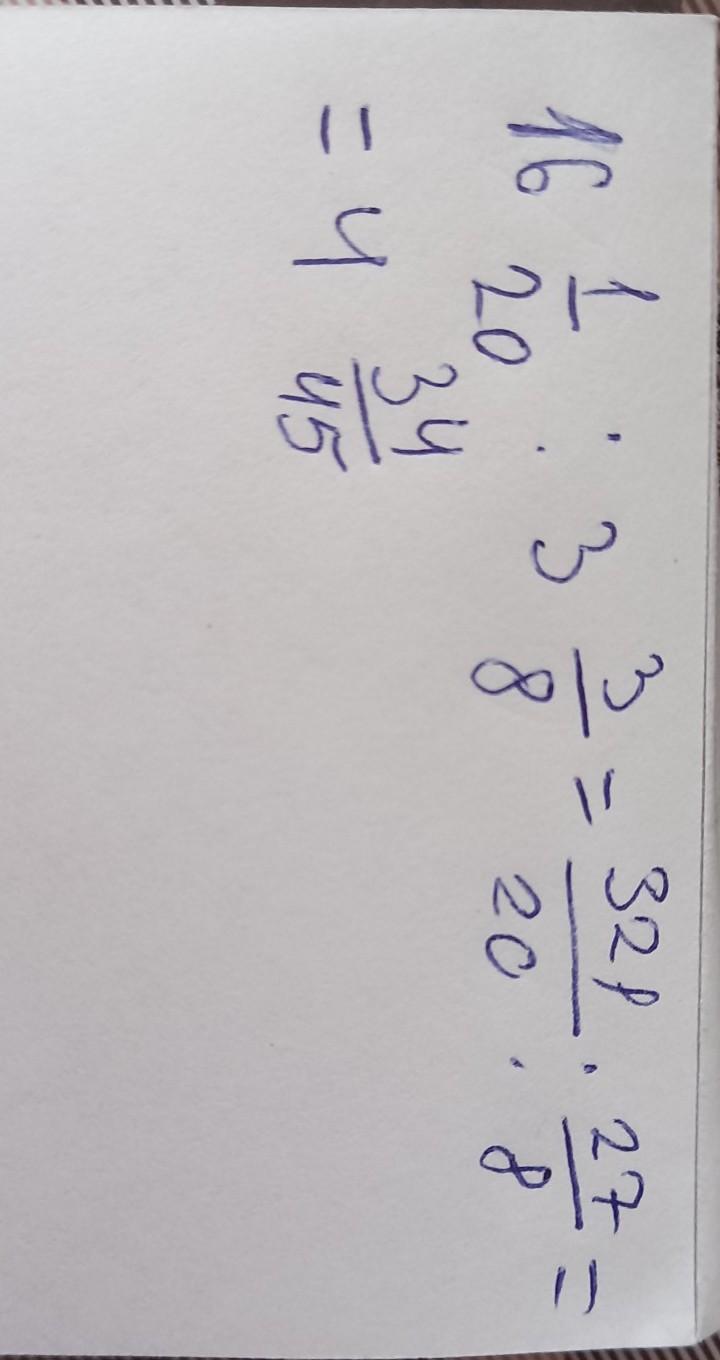 16 1/20 : 3 3/8 = 321/20 : 27/8 =
= 4 34/45